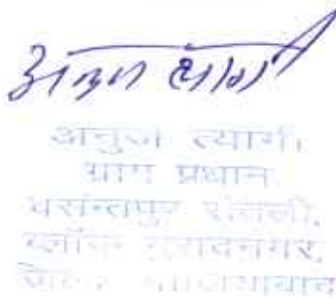 अनुज त्यागी
अनुज त्यागी
ग्राम प्रधान
बसन्तपुर सैंतली,
ब्लॉक मुरादनगर,
जिला गाजियाबाद